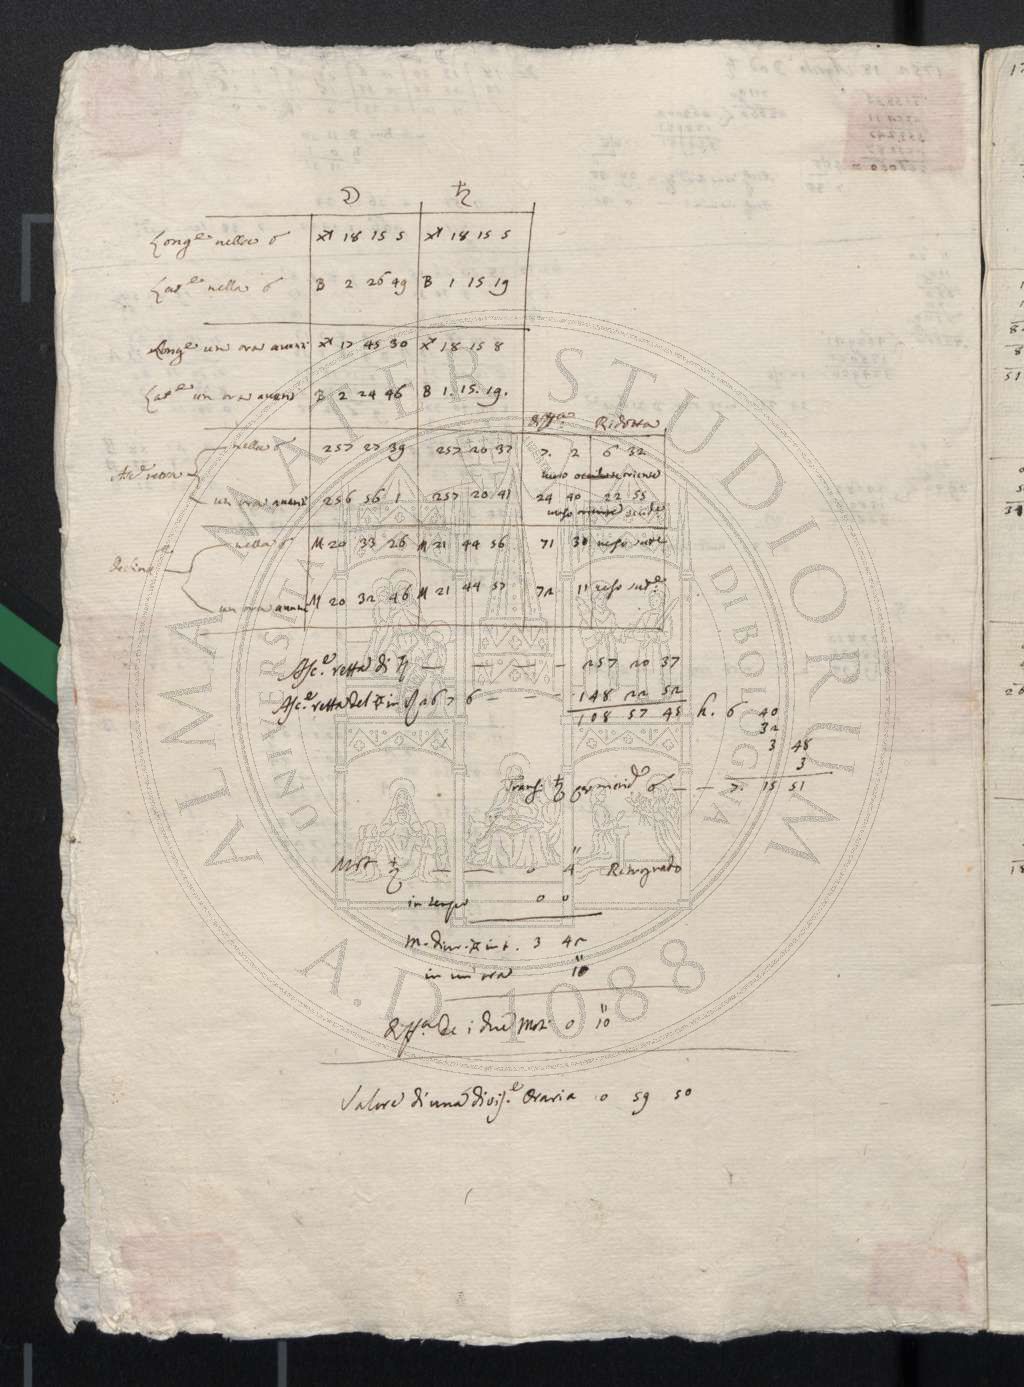 ☽ ♄
Long.e nella ☌ ♐ 18 15 5 ♐ 18 15 5
Lat.e nella ☌ B 2 26 49 B 1 15 19
Long.e un ora avanti ♐ 17 45 30 ♐ 18 15 8
Lat.e un ora avanti B 2 24 46 B 1. 15. 19.
diff.a Ridotta
nella ☌ 257 27 39 257 20 37 7. 2 6 32
Asc.e retta verso oriente
un ora avanti 256 56 1 257 20 41 24 40 22 55
verso occid.e
nella ☌ M 20 33 26 M 21 44 56 71 30 verso sud.e
declin.e
un ora avanti M 20 32 46 M 21 44 57 72 11 verso sud.e
Asc.e retta di ♄ — — — — 257 20 37
Asc.e retta del ☉ in ♌ 26 7 6 — — — 148 22 52
108 57 45 h. 6 40
32
3 48
3
Trans. ♄ per merid.e ☌ — — 7. 15 51
Mot. ♄ — — 0 4" Retrogrado
in tempo 0 0
M. diur. ☉ in t. 3 42
in un' ora 10"
diff.a de i due Moti 0 10"
Valore di una divis.e Oraria 0 59 50
ALMA MATER STUDIORUM
UNIVERSITÀ DI BOLOGNA
A.D. 1088